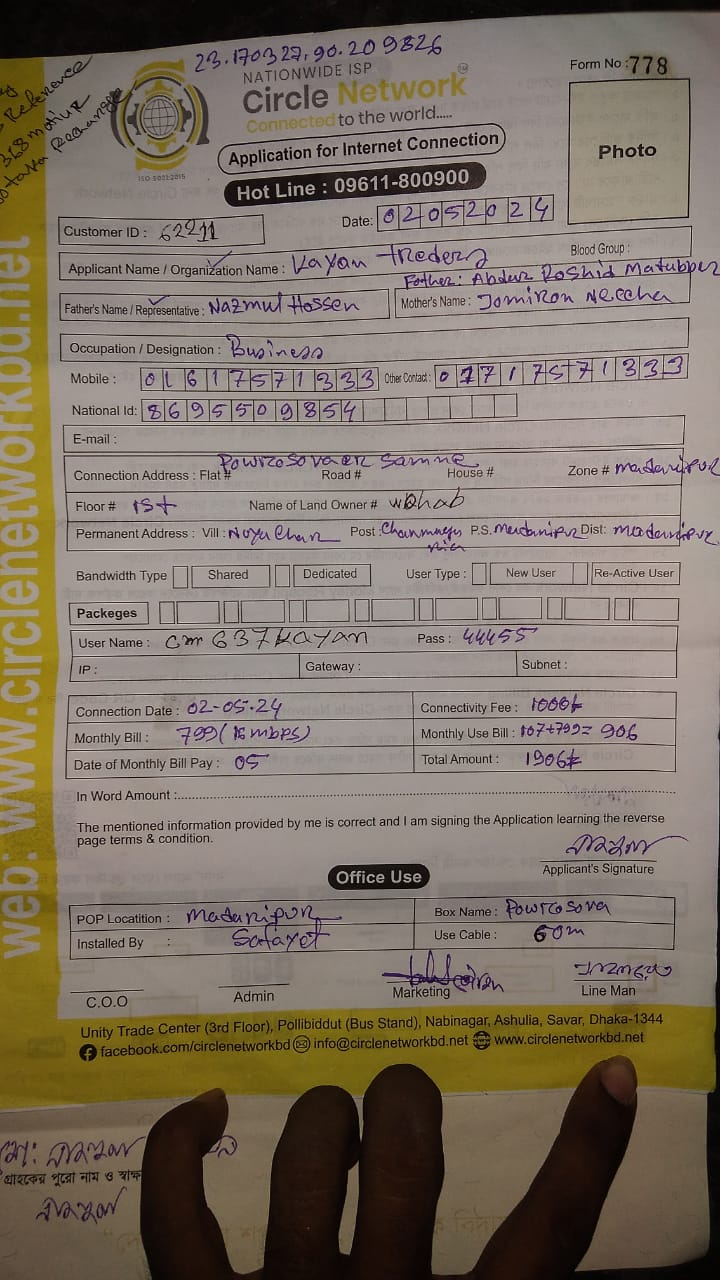 23.170327,90.209826
Reference
NATIONWIDE ISP
Circle Network
Connected to the world.....
Form No : 778
ISO 9001:2015
Application for Internet Connection
Hot Line : 09611-800900
Photo
Customer ID : 62211
Date: 02052024
Blood Group :
Applicant Name / Organization Name : Kayan Treders
Father: Abdur Roshid Matubber
Father's Name / Representative : Nazmul Hossen
Mother's Name : Jomiron Neccha
Occupation / Designation : Business
Mobile : 01617571333 Other Contact : 01717571333
National Id: 8695509854
E-mail :
Connection Address : Flat # Road # House # Zone # madaripur
Floor # 1st Name of Land Owner # wohab
Permanent Address : Vill : Noya Char Post : P.S. Madaripur Dist: madaripur
Bandwidth Type Shared Dedicated User Type : New User Re-Active User
Packeges
User Name : cm637kayan Pass : 44455
IP : Gateway : Subnet :
Connection Date : 02-05-24 Connectivity Fee : 1000/-
Monthly Bill : 799 (15 mbps) Monthly Use Bill : 107+799= 906
Date of Monthly Bill Pay : 05 Total Amount : 1906/-
In Word Amount :
The mentioned information provided by me is correct and I am signing the Application learning the reverse
page terms & condition.
Applicant's Signature
Office Use
POP Locatition : Madaripur Box Name : Powrosova
Installed By : Safayet Use Cable : 60m
C.O.O Admin Marketing Line Man
Unity Trade Center (3rd Floor), Pollibiddut (Bus Stand), Nabinagar, Ashulia, Savar, Dhaka-1344
facebook.com/circlenetworkbd info@circlenetworkbd.net www.circlenetworkbd.net
web: www.circlenetworkbd.net
গ্রাহকের পুরো নাম ও স্বাক্ষ